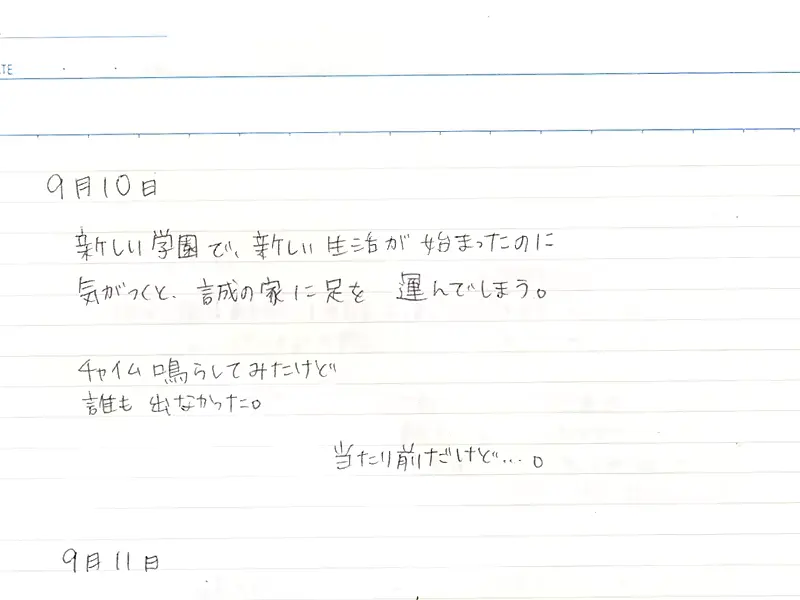 TE
9月10日
新しい学園で、新しい生活が始まったのに
気がつくと、誠の家に足を 運んでしまう。
チャイム鳴らしてみたけど
誰も出なかった。
当たり前だけど…。
9月11日